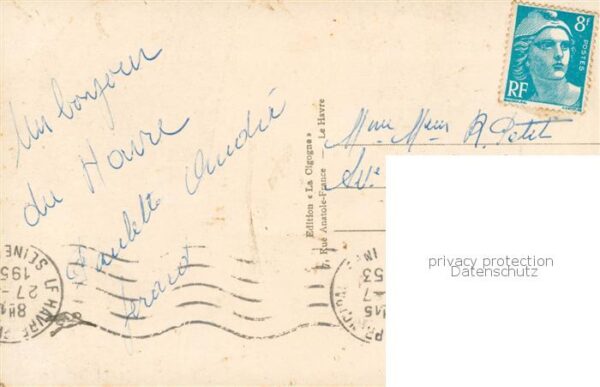 Un bonjour
du Havre
Paulette André
Gérard
Edition « La Cigogne »
7, Rue Anatole-France — Le Havre
8F
POSTES
RF
R. Petit
LE HAVRE
SEINE
27-
195
8H
53
-7
15
privacy protection
Datenschutz